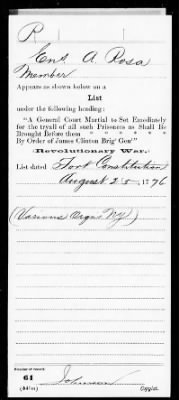 R
Ens. A Rosa
Member
Appears as shown below on a
List
under the following heading:
"A General Court Martial to Set Emediately
for the tryall of all such Prisoners as Shall Be
Brought Before them " " " " "
By Order of James Clinton Brig' Gen'"
Revolutionary War.
List dated Fort Constitution
August 28, 1776
(Various Orgns NY)
Number of record:
61
Johnson